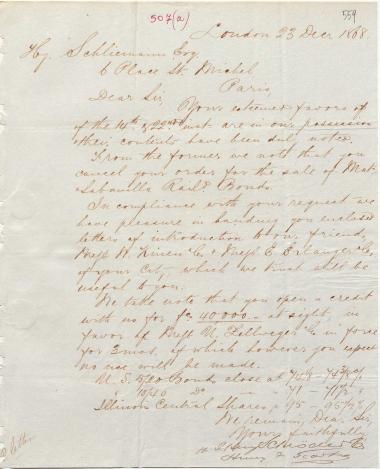 507(a)
559
London 23 Decr 1868.
Hy. Schliemann Esq
6 Place St. Michel
Paris
Dear Sir,
Your esteemed favors of
of the 14th & 22nd inst. are in our possession
their contents have been duly noted.
From the former we note that you
cancel your order for the sale of Mat.
Sabanilla Railrd Bonds.
In compliance with your request we
have pleasure in handing you enclosed
letters of introduction to our friends,
Messrs Co & Messrs E. Erlanger Co
of your City, which we trust will be
useful to you.
We take note that you open a credit
with us for fcs 40,000 at sight, in
favor of Messrs Co in force
for 3 mos. of which however you expect
no use will be made.
U. S. 5/20 Bonds close at
" 10/40 Do
Illinois Central Shares 95
We remain, Dear Sir,
Yours faithfully
Henry Schröder & Co